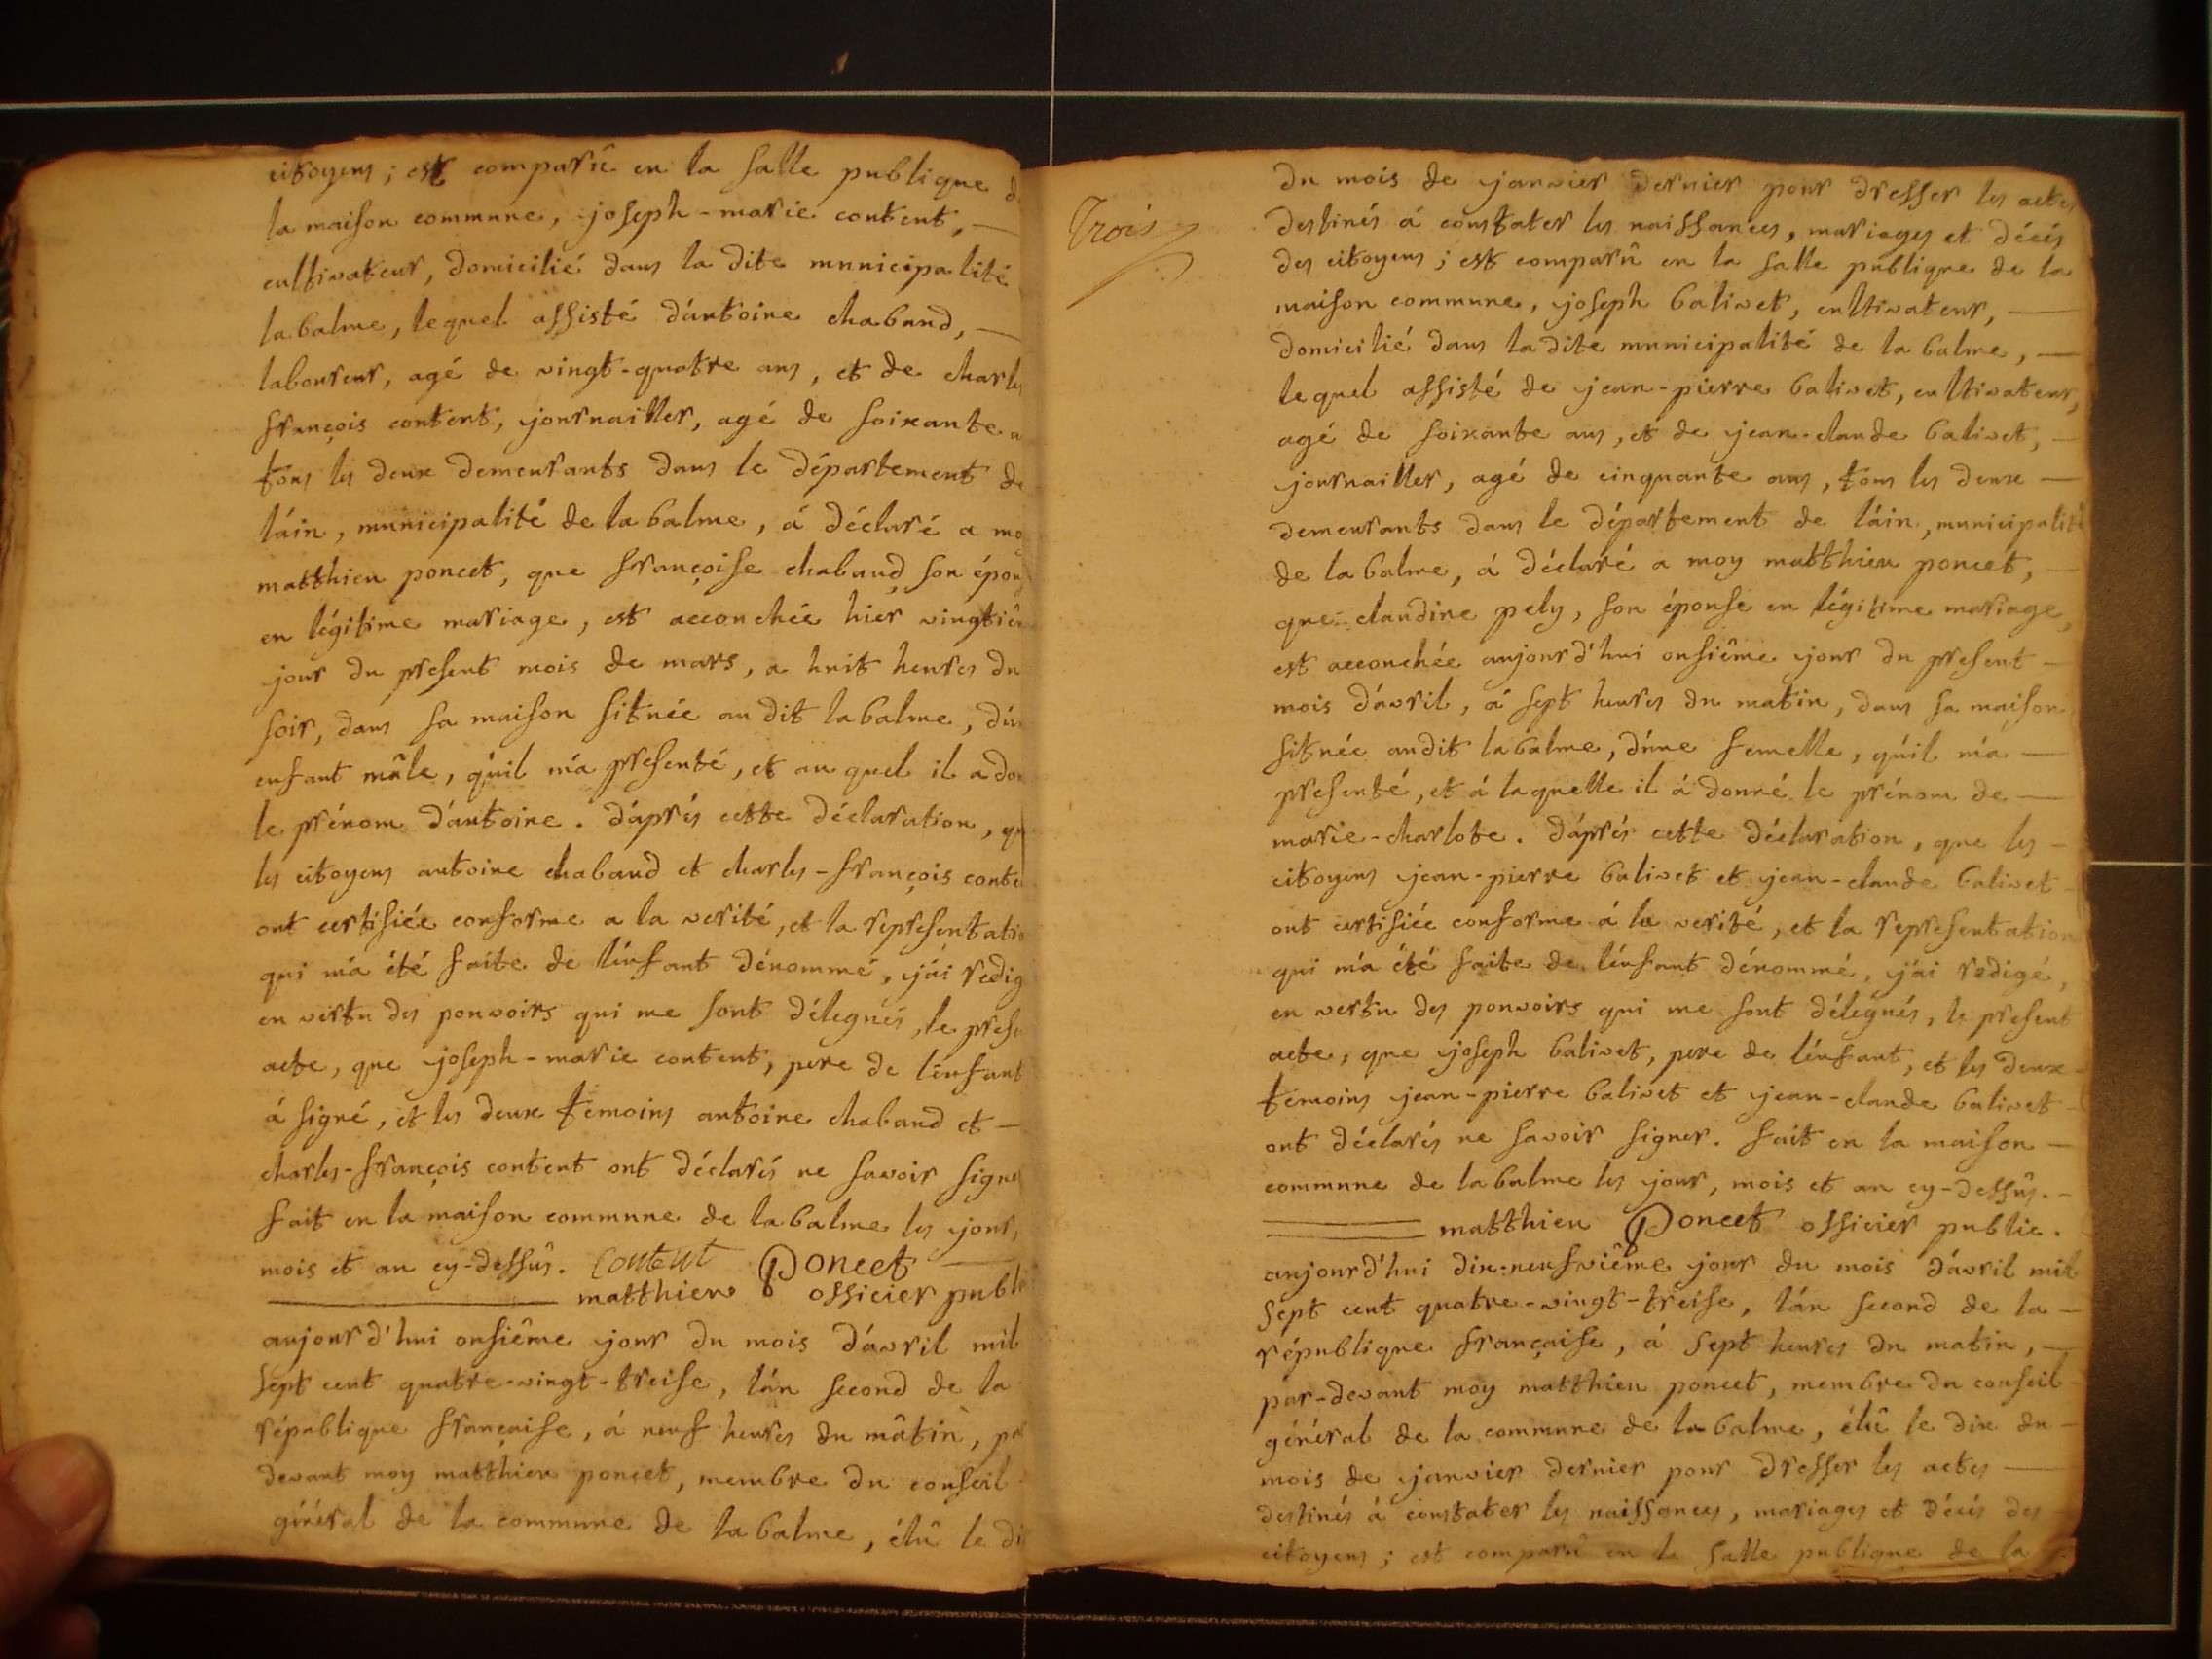 citoyens ; est comparû en la salle publique de
la maison commune, joseph-marie content, —
cultivateur, domicilié dans la dite municipalité
la balme, lequel assisté d'antoine chabaud, —
laboureur, agé de vingt-quatre ans, et de charles
françois content, journailler, agé de soixante
tous les deux demeurants dans le département de
l'áin, municipalité de la balme, á déclaré a moy
matthieu poncet, que françoise chabaud son épous
en légitime mariage, est accouchée hier vingtiêm
jour du present mois de mars, a huit heures du
soir, dans sa maison située au dit la balme, d'ún
enfant mâle, qu'il m'a presenté, et au quel il a don
le prénom d'antoine. d'áprés cette déclaration, que
les citoyens antoine chabaud et charles-françois conte
ont certifiée conforme a la verité, et la representatio
qui m'a été faite de l'énfant dénommé, j'ái redig
en vertu des pouvoirs qui me sont délegués, le prese
acte, que joseph-marie content, pere de l'énfant
á signé, et les deux temoins antoine chabaud et —
charles-françois content ont déclarés ne savoir signe
fait en la maison commune de la balme les jour,
mois et an cy-dessus. Content Poncet —
matthieu officier publi
aujourd'hui onsiême jour du mois d'ávril mil
sept cent quatre-vingt-treise, l'án second de la
république française, á neuf heures du mâtin, par
devant moy matthieu poncet, membre du conseil
général de la commune de la balme, élû le di
Trois
du mois de janvier dernier pour dresser les actes
destinés á constater les naissances, mariages et décés
des citoyens ; est comparû en la salle publique de la
maison commune, joseph balivet, cultivateur, —
domicilié dans la dite municipalité de la balme, —
lequel assisté de jean-pierre balivet, cultivateur,
agé de soixante ans, et de jean-claude balivet, —
journailler, agé de cinquante ans, tous les deux —
demeurants dans le département de l'áin, municipalité
de la balme, á déclaré a moy matthieu poncet, —
que claudine pely, son épouse en légitime mariage,
est accouchée aujourd'hui onsiême jour du present —
mois d'ávril, á sept heures du matin, dans sa maison
située audit la balme, d'úne femelle, qu'il m'á —
presenté, et á laquelle il á donné le prénom de —
marie-charlote. d'áprés cette déclaration, que les —
citoyens jean-pierre balivet et jean-claude balivet —
ont certifiée conforme á la verité, et la representation
qui m'a été faite de l'énfant dénommé, j'ái redigé,
en vertu des pouvoirs qui me sont délégués, le present
acte, que joseph balivet, pere de l'énfant, et les deux —
témoins jean-pierre balivet et jean-claude balivet —
ont déclarés ne savoir signer. fait en la maison —
commune de la balme les jour, mois et an cy-dessus. —
matthieu Poncet officier public.
aujourd'hui dix-neufviême jour du mois d'ávril mil
sept cent quatre-vingt-treise, l'án second de la —
république française, á sept heures du matin, —
par-devant moy matthieu poncet, membre du conseil —
général de la commune de la balme, élû le dix du —
mois de janvier dernier pour dresser les actes —
destinés á constater les naissances, mariages et décés des
citoyens ; est comparû en la salle publique de la